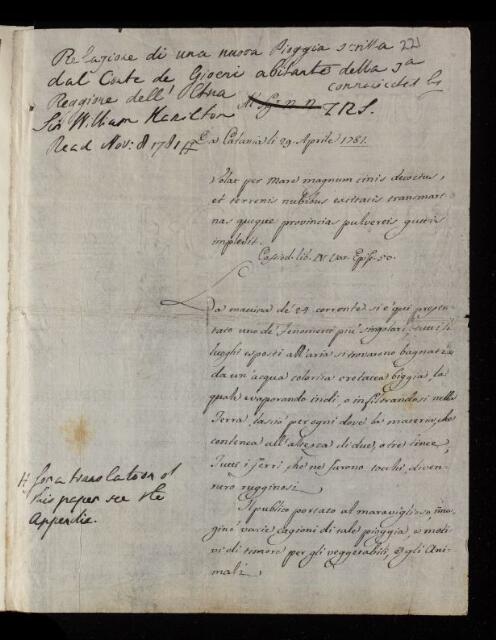 Relazione di una nuova Pioggia scritta 221
dal Conte de Gioeni abitante della 3a
Reggione dell' Etna communicated by
Sir William Hamilton F.R.S.
Read Nov: 8 1781
Da Catania li 29. Aprile 1781.
Volat per mare magnum cinis decoctus,
et terrenis nubibus excitatis transmari-
nas quoque provincias pulvereis guttis
implevit.
Cassiod. lib. IV Var. Epis. 50.
La mattina de' 24 corrente si è qui presen-
tato uno de' Fenomeni più singolari: tutti li
luoghi esposti all'aria si trovarono bagnati
da un'acqua colorita cretacea biggia, la
quale evaporando indi, o infiltrandosi nella
Terra, lasciò per ogni dove la materia, che
contenea all'altezza di due, o tre linee,
Tutti i ferri, che ne furono tocchi, diven-
nero rugginosi.
Il publico portato al maraviglioso, imma-
ginò varie cagioni di tale pioggia, e moti-
vi di timore per gli veggetabili, e gli Ani-
mali.
# for a translation of
this paper see the
Appendix.